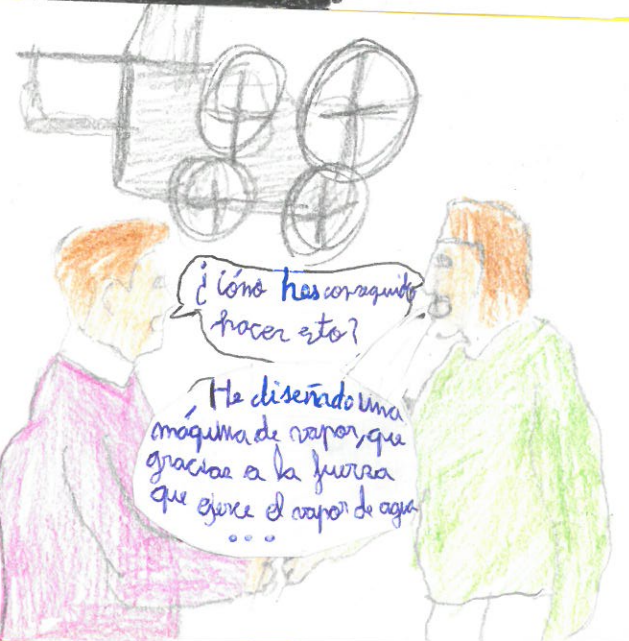 ¿Cómo has conseguido
hacer esto?
He diseñado una
máquina de vapor, que
gracias a la fuerza
que ejerce el vapor de agua
...